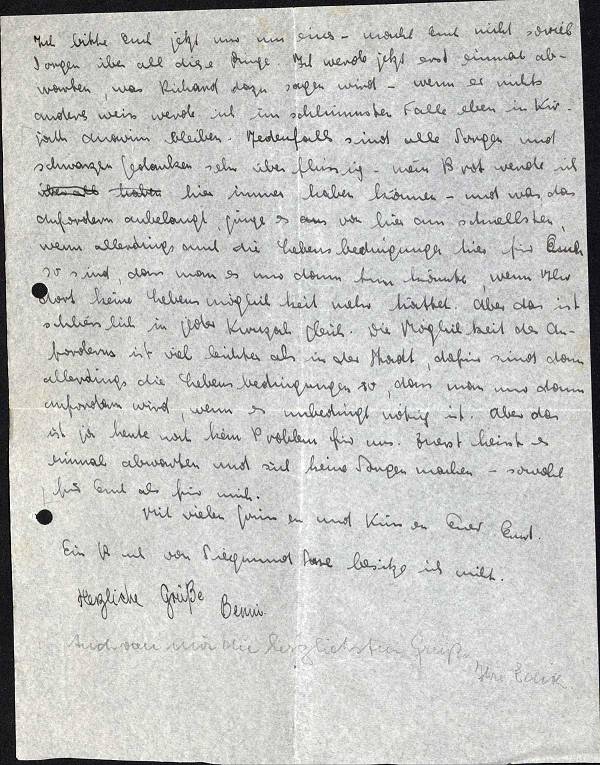 Ich bitte Euch jetzt nur um eines - macht Euch nicht soviel
Sorgen über all diese Dinge. Ich werde jetzt erst einmal ab-
warten, was Richard dazu sagen wird - wenn er nichts
anderes weiss werde ich im schlimmsten Falle eben in Kir-
jath Anavim bleiben. Jedenfalls sind alle Sorgen und
schwarzen Gedanken sehr überflüssig - mein Brot werde ich
überall haben hier immer haben können - und was das
Anfordern anbelangt, ginge es von hier am schnellsten,
wenn allerdings auch die Lebensbedingungen hier für Euch
so sind, dass man es nur dann tun könnte, wenn Ihr
dort keine Lebensmöglichkeit mehr hättet. Aber das ist
schliesslich in jeder Kwuzah gleich. Die Möglichkeit des An-
forderns ist viel leichter als in der Stadt, dafür sind dann
allerdings die Lebensbedingungen so, dass man nur dann
anfordern wird, wenn es unbedingt nötig ist. Aber das
ist ja heute noch kein Problem für uns. Zuerst heisst es
einmal abwarten und sich keine Sorgen machen - sowohl
für Euch als für mich.
Mit vielen Grüssen und Küssen Euer
Ein von Siegmund besitze ich nicht.
Herzliche Grüße
Benni.
Auch von mir die herzlichsten Grüße
Ihre